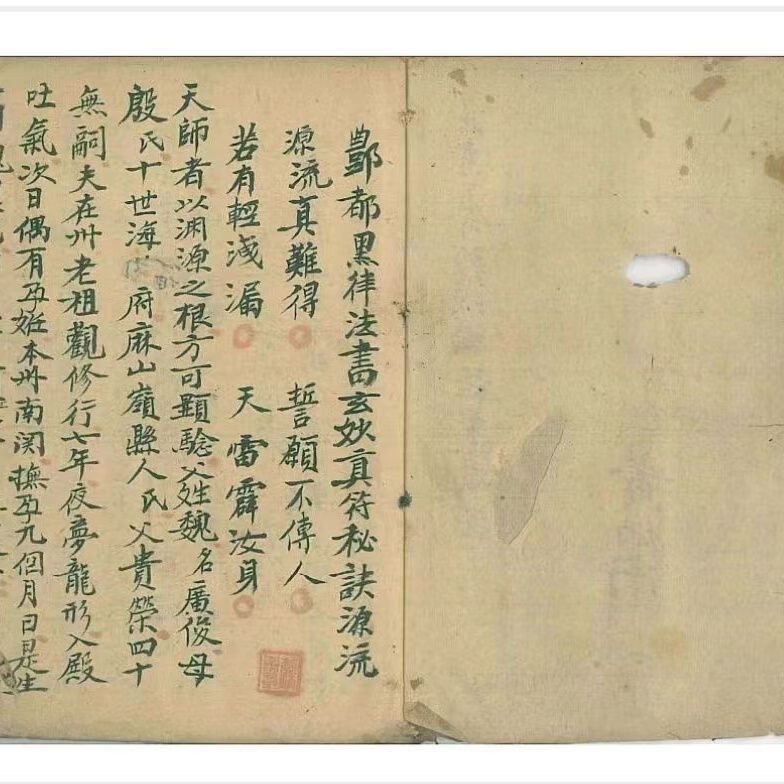 酆都黑律法書玄妙真符秘訣源流
源流真難得 誓願不傳人
若有輕浅漏 天雷霹汝身
天師者以渊源之根方可顯騐父姓魏名廣俊母
殷氏十世海府麻山嶺縣人氏父貴荣四十
無嗣夫在州老祖觀修行七年夜夢龍形入殿
吐氣次日偶有孕妊本州南関撫孕九個月日是生